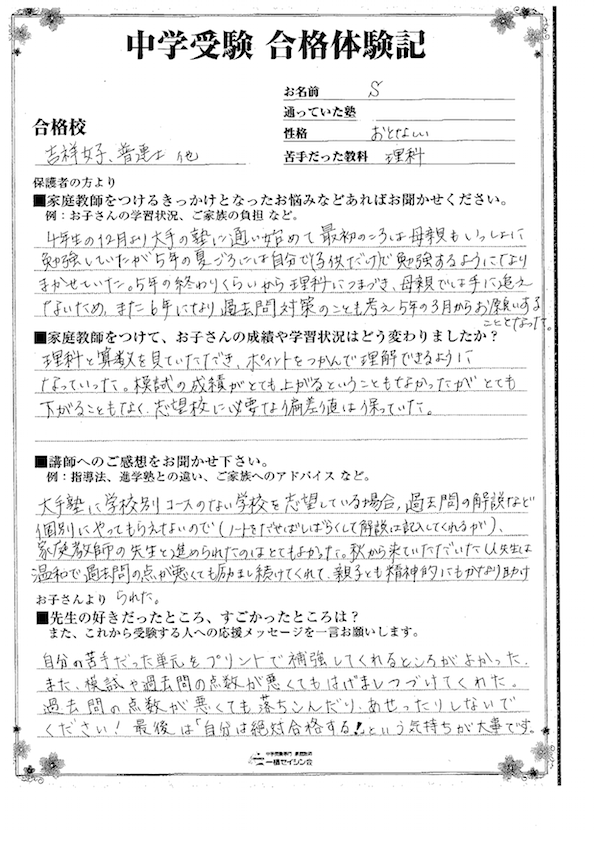 中学受験 合格体験記
お名前 S
通っていた塾
性格 おとなしい
苦手だった教科 理科
合格校
吉祥女子、普連土 他
保護者の方より
■家庭教師をつけるきっかけとなったお悩みなどあればお聞かせください。
例：お子さんの学習状況、ご家族の負担 など。
4年生の12月より大手の塾に通い始めて最初のころは母親もいっしょに
勉強していたが5年の夏ごろには自分で(子供だけ)で勉強するようになり
まかせていた。5年の終わりくらいから理科につまづき、母親では手に追え
ないため、また6年になり過去問対策のことも考え5年の3月からお願いする
こととなった。
■家庭教師をつけて、お子さんの成績や学習状況はどう変わりましたか？
理科と算数を見ていただき、ポイントをつかんで理解できるように
なっていった。模試の成績がとても上がるということもなかったが とても
下がることもなく、志望校に必要な偏差値は保っていた。
■講師へのご感想をお聞かせ下さい。
例：指導法、進学塾との違い、ご家族へのアドバイス など。
大手塾に学校別コースのない学校を志望している場合、過去問の解説など
個別にやってもらえないので(ノートをだせばしばらくして解説は記入してくれるが)、
家庭教師の先生と進められたのはとてもよかった。秋から来ていただいた 先生は
温和で過去問の点が悪くても励まし続けてくれて、親子とも精神的にもかなり助け
られた。
お子さんより
■先生の好きだったところ、すごかったところは？
また、これから受験する人への応援メッセージを一言お願いします。
自分の苦手だった単元をプリントで補強してくれるところがよかった。
また、模試や過去問の点数が悪くてもはげましつづけてくれた。
過去問の点数が悪くても落ちこんだり、あせったりしないで
ください！最後は「自分は絶対合格する！」という気持ちが大事です。
中学受験専門 家庭教師
一橋セイシン会